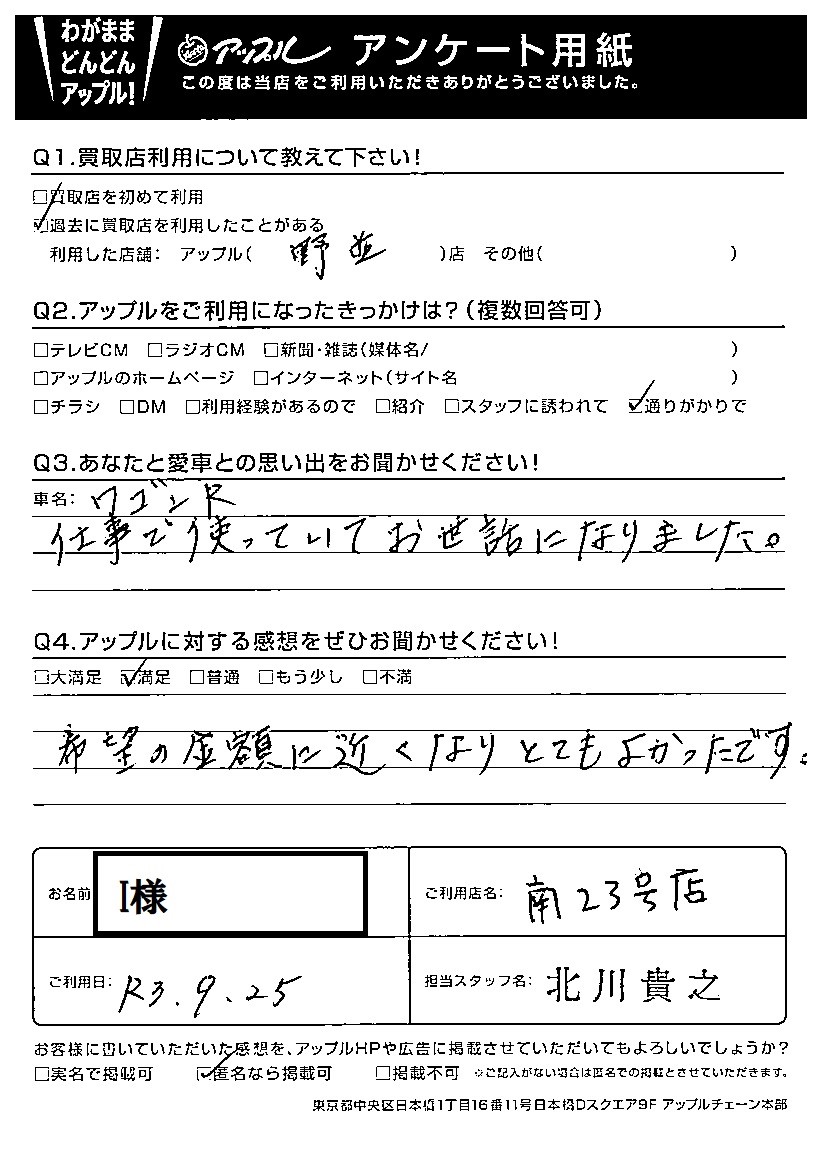 わがまま
どんどん
アップル!
アップル アンケート用紙
この度は当店をご利用いただきありがとうございました。
Q1.買取店利用について教えて下さい!
□買取店を初めて利用
☑過去に買取店を利用したことがある
利用した店舗: アップル( 野並 )店 その他( )
Q2.アップルをご利用になったきっかけは?(複数回答可)
□テレビCM □ラジオCM □新聞・雑誌(媒体名/ )
□アップルのホームページ □インターネット(サイト名 )
□チラシ □DM □利用経験があるので □紹介 □スタッフに誘われて ☑通りがかりで
Q3.あなたと愛車との思い出をお聞かせください!
車名: ワゴンR
仕事で使っていてお世話になりました。
Q4.アップルに対する感想をぜひお聞かせください!
□大満足 ☑満足 □普通 □もう少し □不満
希望の金額に近くなりとてもよかったです。
お名前 I様
ご利用店名: 南23号店
ご利用日: R3.9.25
担当スタッフ名: 北川貴之
お客様に書いていただいた感想を、アップルHPや広告に掲載させていただいてもよろしいでしょうか?
□実名で掲載可 ☑匿名なら掲載可 □掲載不可 ※ご記入がない場合は匿名での掲載とさせていただきます。
東京都中央区日本橋1丁目16番11号日本橋Dスクエア9F アップルチェーン本部